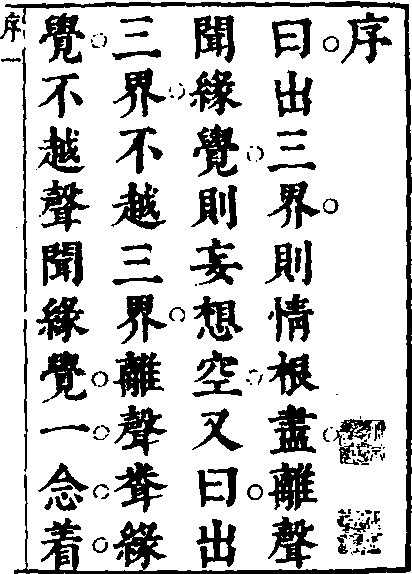 序
曰出三界則情根盡離聲
聞緣覺則妄想空又曰出
三界不越三界離聲聋緣
覺不越聲聞緣覺一念着
序一